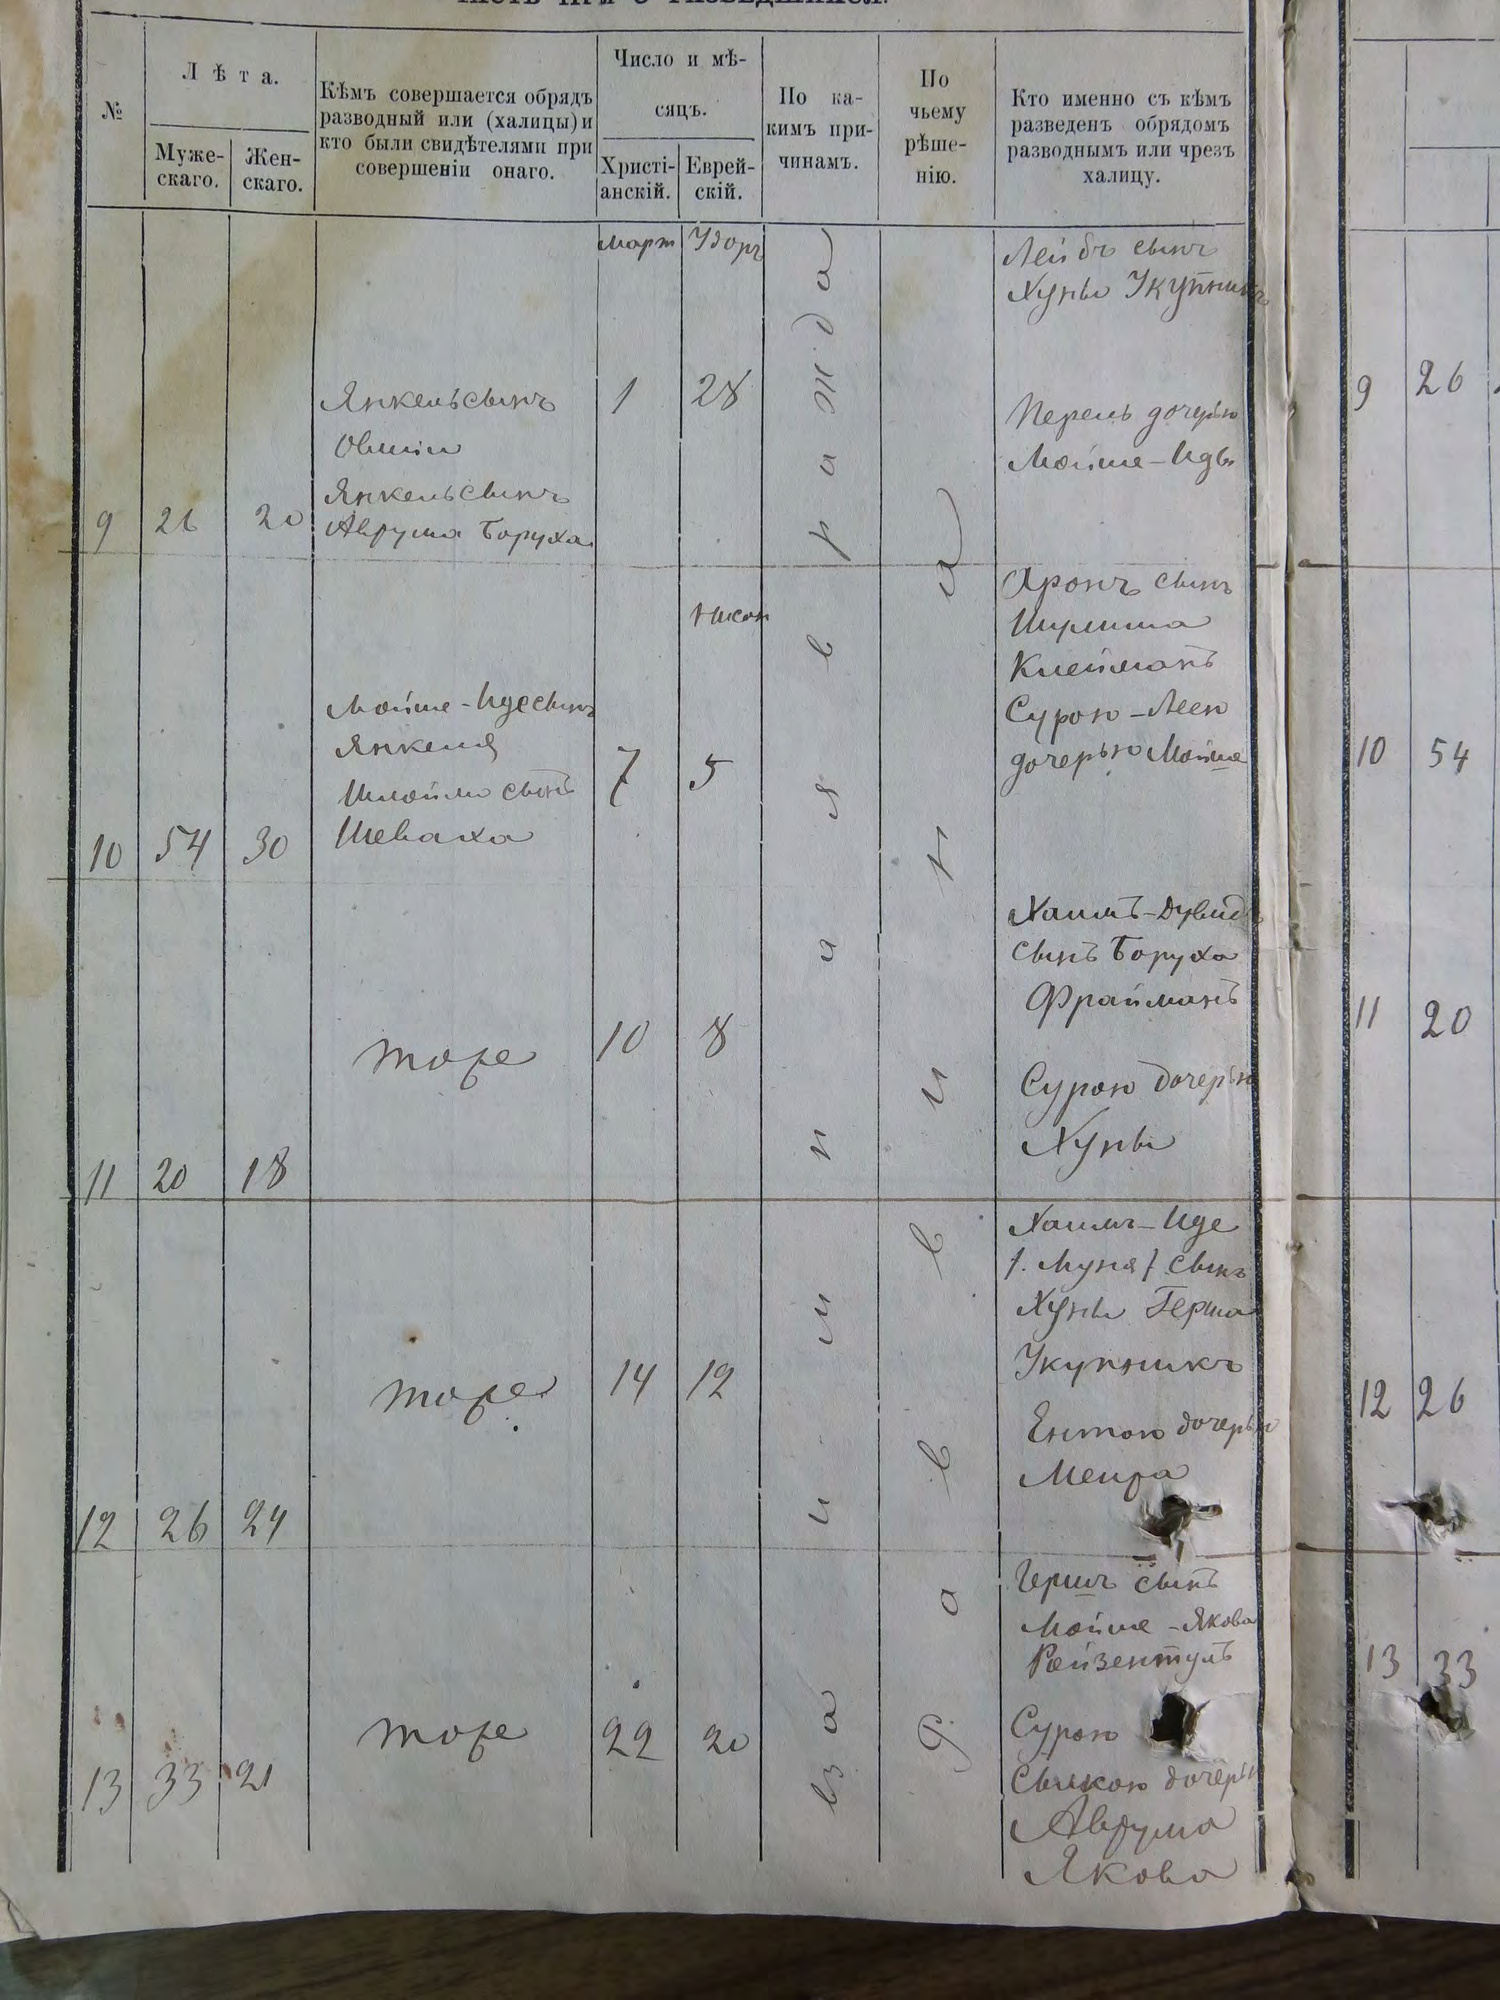 №
Лѣта.
Муже-
скаго.
Жен-
скаго.
Кѣмъ совершается обрядъ
разводный или (халицы) и
кто были свидѣтелями при
совершеніи онаго.
Число и мѣ-
сяцъ.
Христі-
анскій.
Еврей-
скій.
По ка-
кимъ при-
чинамъ.
По
чьему
рѣше-
нію.
Кто именно съ кѣмъ
разведенъ обрядомъ
разводнымъ или чрезъ
халицу.
Март
взаимная вражда
Раввина
9 26 20
Янкель сынъ
Янкель сынъ
Аврума Боруха
1 28
Лейбъ сынъ
Хуны Укупникъ
Перель дочерью
Мойше-Иды
10 54 30
Мойше-Иде сынъ
Янкеля
Шлойма сынъ
Шеваха
Нисон
7 5
Аронъ сынъ
Шулима
Клейманъ
Сурою-Леею
дочерью Мойше
11 20 18
тоже
10 8
Хаимъ-Дувидъ
сынъ Боруха
Фрайманъ
Сурою дочерью
Хуны
12 26 24
тоже
14 12
Хаимъ-Иде
/. Муня/ сынъ
Хуны Герша
Укупникъ
Ентою дочерью
Меира
13 33 21
тоже
22 20
Гершъ сынъ
Мойше-Якова
Ройзентулъ
Сурою
дочерью
Аврума
Якова
9 26
10 54
11 20
12 26
13 33